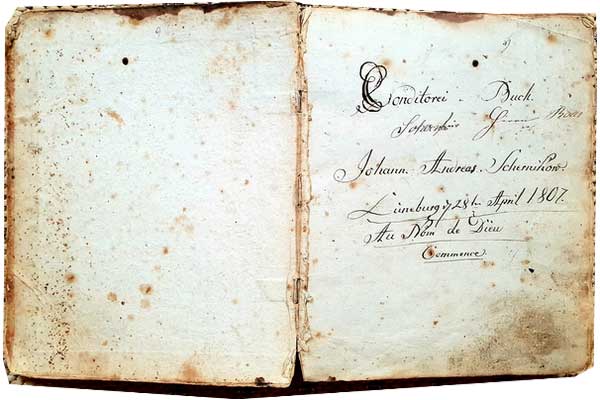 Conditorei - Buch.
Johann Andreas Schernikow.
Lüneburg d 28t April 1807.
Au Nom de Dieu
Commence